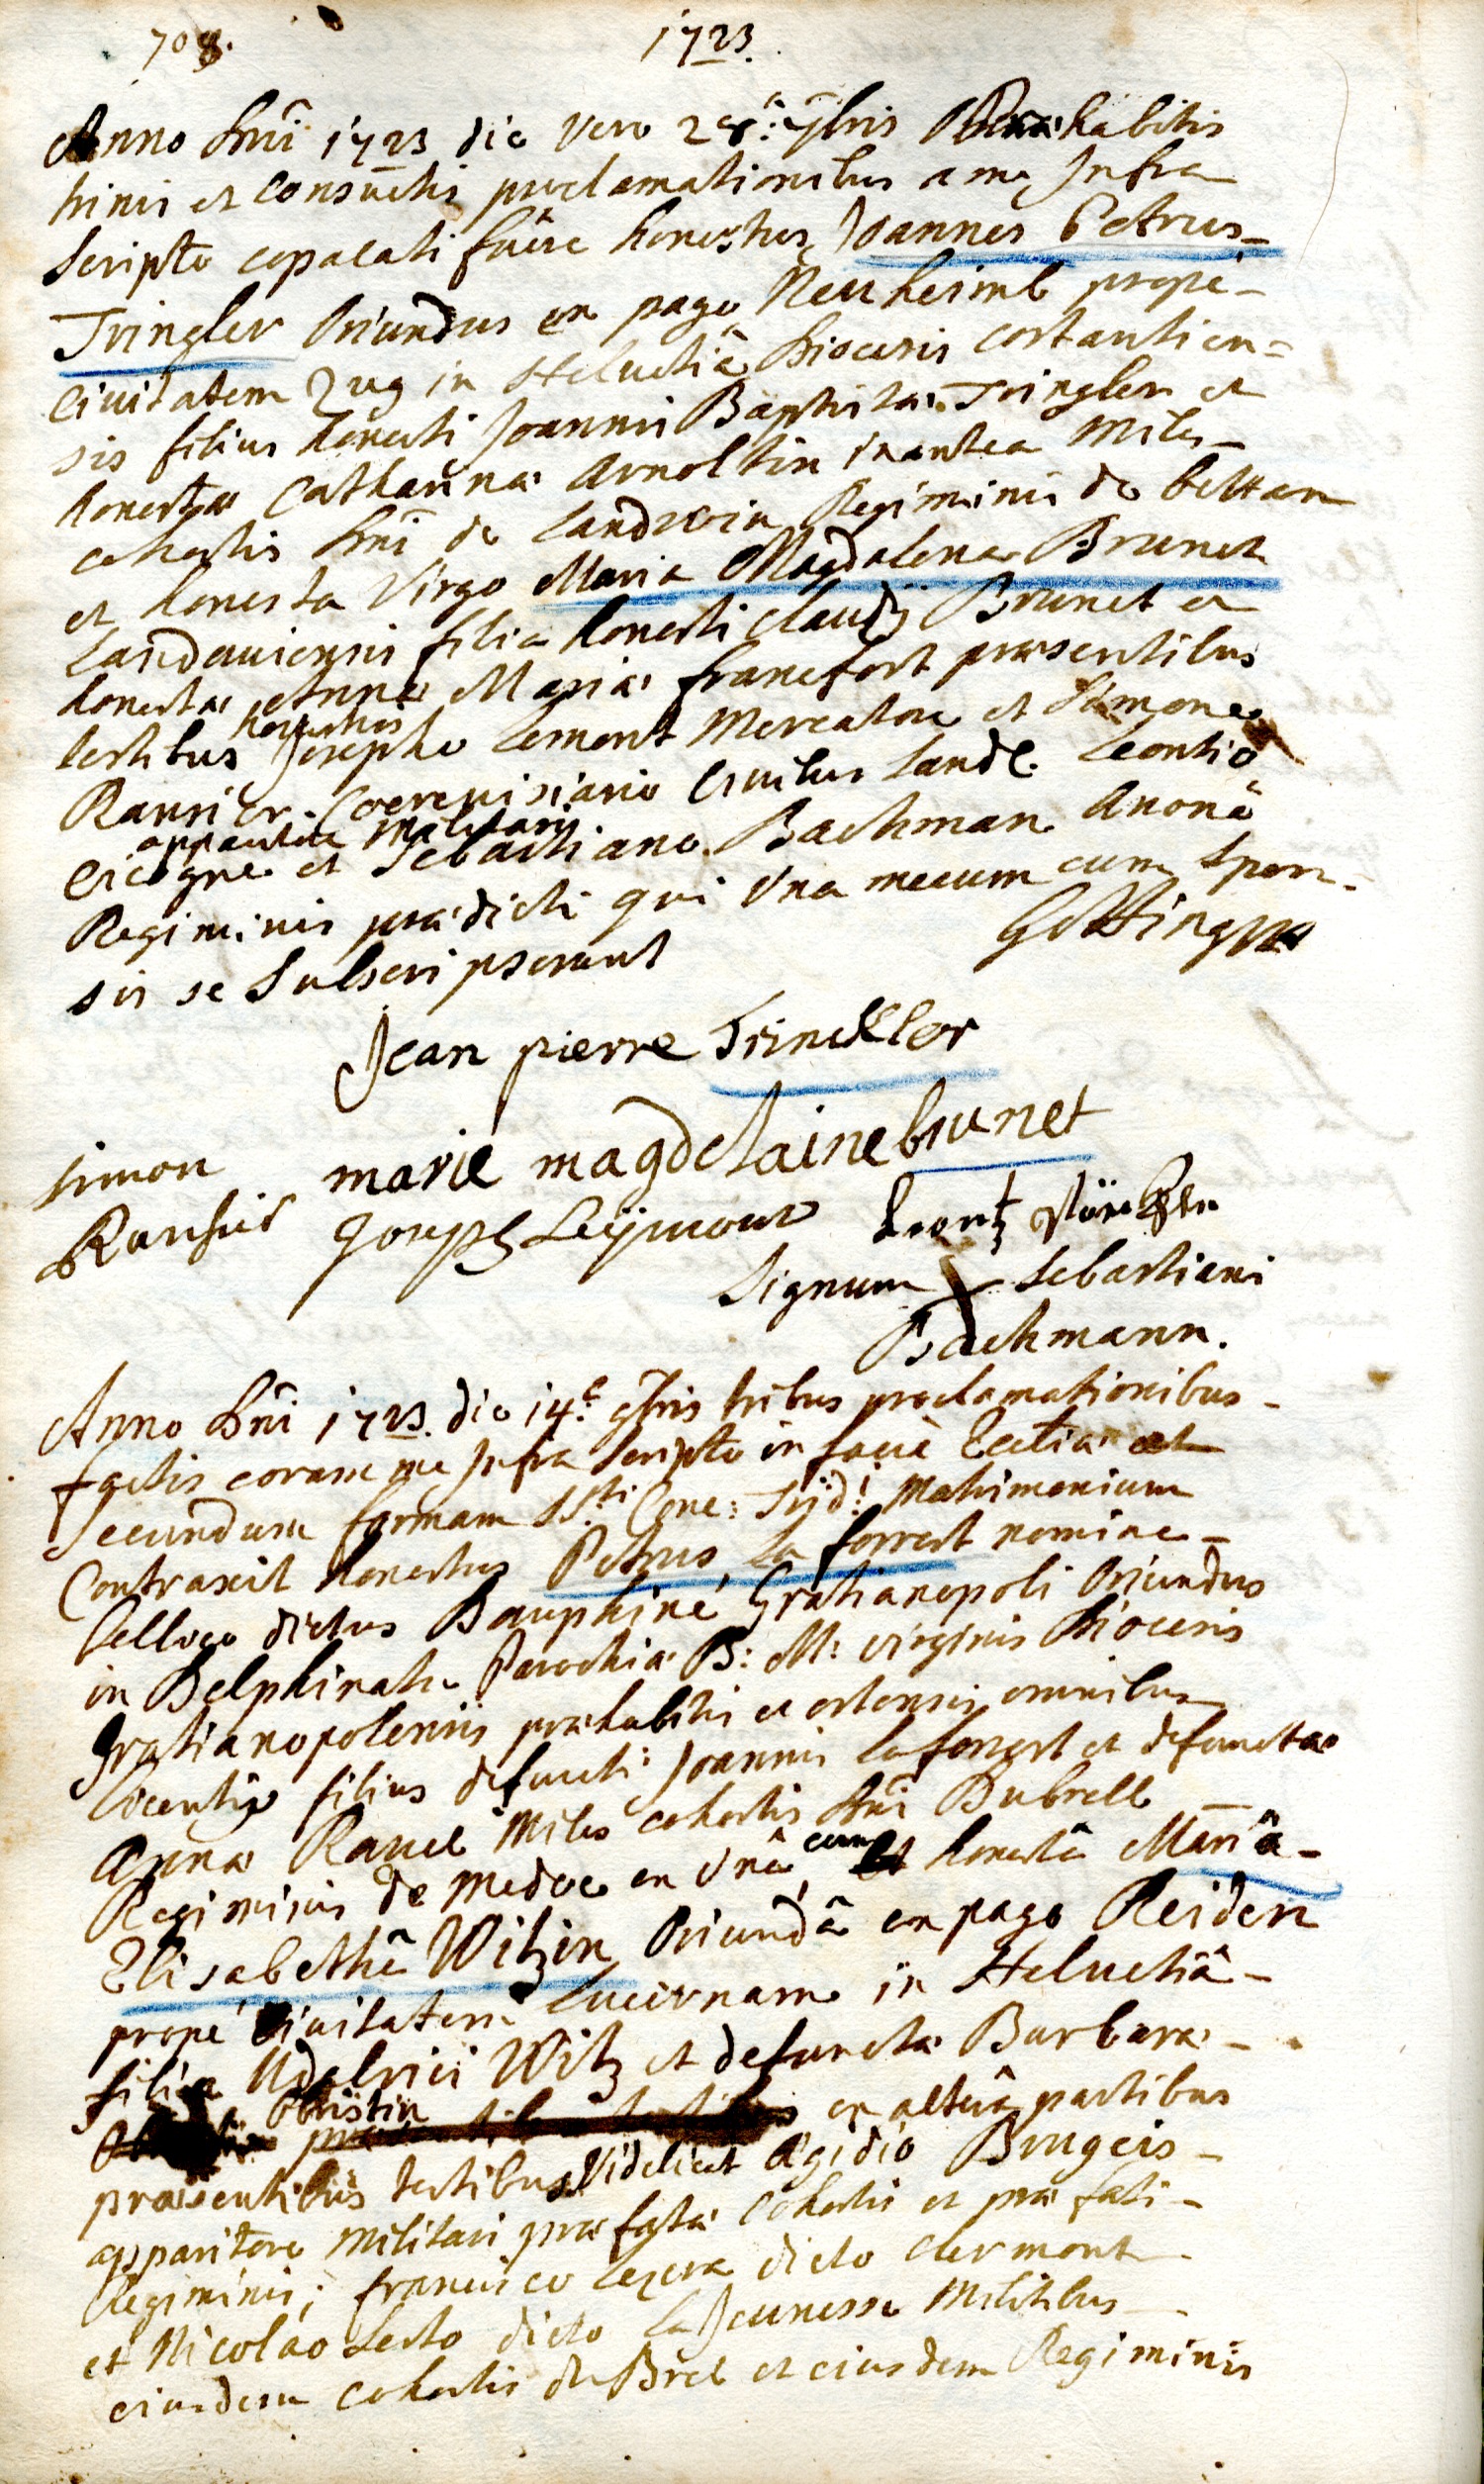 708. 1723.
Anno Dni 1723 die vero 28.â 7bris Præhabitis
trinis et consuetis proclamationibus a me Infra
Scripto copulati fuêre honestus Joannes Petrus
Tringler Oriundus ex pago Neuheimb propè
Civitatem Zug in Helvetiâ Diocesis costantien=
sis filius honesti Joannis Baptistæ Tringler et
honestæ Catharinæ Arnoltin inantea Miles
cohortis Dni de Landwin Regiminis de bettan
et honesta Virgo Maria Magdalena Brunet
Landaviensis filia honesti Claudij Brunet et
honestæ Annæ Mariæ francfort præsentibus
testibus honestis Josepho Lemont Mercatore et Simone
Ransier Coerevisiario Civibus Land. Leontio
apparitore Militari
et Sebastiano Bachman Anonâ
Regiminis prædicti qui Una mecum cum Spon-
sis se Subscripserunt
Gotting
Jean pierre Trinckler
marie magdelaine brunet
Simon
Ransier Joseph Leijmont Leontz
Signum X Sebastiani
Bachmann.
Anno Dni 1723. die 14.â 9bris tribus proclamationibus
factis coram me Infra Scripto in facie Ecctiæ et
Secundum formam SSti Conc: Trid: Matrimonium
Contraxit honestus Petrus La forrest nomine
bellico dictus Dauphiné Gratianopoli Oriundus
in Delphinatu Parochiæ B: M: virginis Diocesis
Gratianopolensis præhabitis et ostensis omnibus
licentiis filius defuncti Joannis Laforrest et defunctæ
Annæ Ravel Miles cohortis Dni Dubrell
Regiminis de Medoc ex Unâ, cum honestâ Mariâ
Elisabethâ Witzin Oriundâ ex pago Reiden
propè Civitatem Lucernam in Helvetiâ
filia Udalrici Witz et defunctæ Barbaræ
Obristin ex alterâ partibus
præsentibus testibus Videlicet Ægidio Brugeis
apparitore Militari præfatæ Cohortis et præfati
Regiminis; francisco Lezera dicto Clermont
et Nicolao Lesto dicto LaJeunesse Militibus
eiusdem cohortis du Brel et eiusdem Regiminis